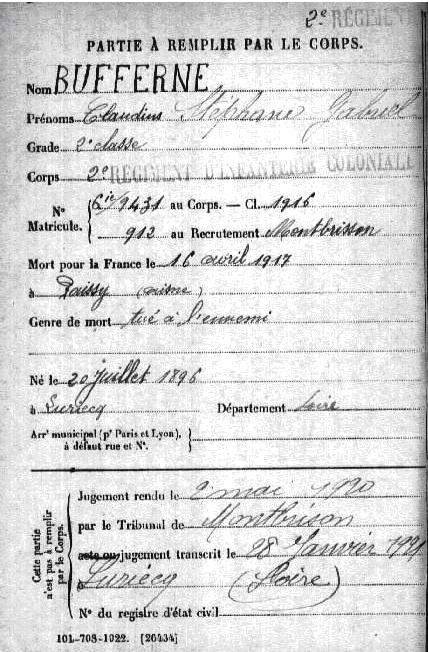 2e RÉGIMENT
PARTIE À REMPLIR PAR LE CORPS.
Nom BUFFERNE
Prénoms Claudius Stéphane Gabriel
Grade 2e classe
Corps 2e RÉGIMENT D'INFANTERIE COLONIALE
No Matricule. 9431 au Corps. — Cl. 1916
912 au Recrutement Montbrisson
Mort pour la France le 16 avril 1917
à Paissy (aisne)
Genre de mort tué à l'ennemi
Né le 20 juillet 1896
à Luriecq Département Loire
Arrt municipal (pr Paris et Lyon),
à défaut rue et No.
Cette partie n'est pas à remplir par le Corps.
Jugement rendu le 2 mai 1920
par le Tribunal de Montbrison
acte ou jugement transcrit le 28 Janvier 1921
à Luriecq (Loire)
No du registre d'état civil
101-708-1922. [26434]